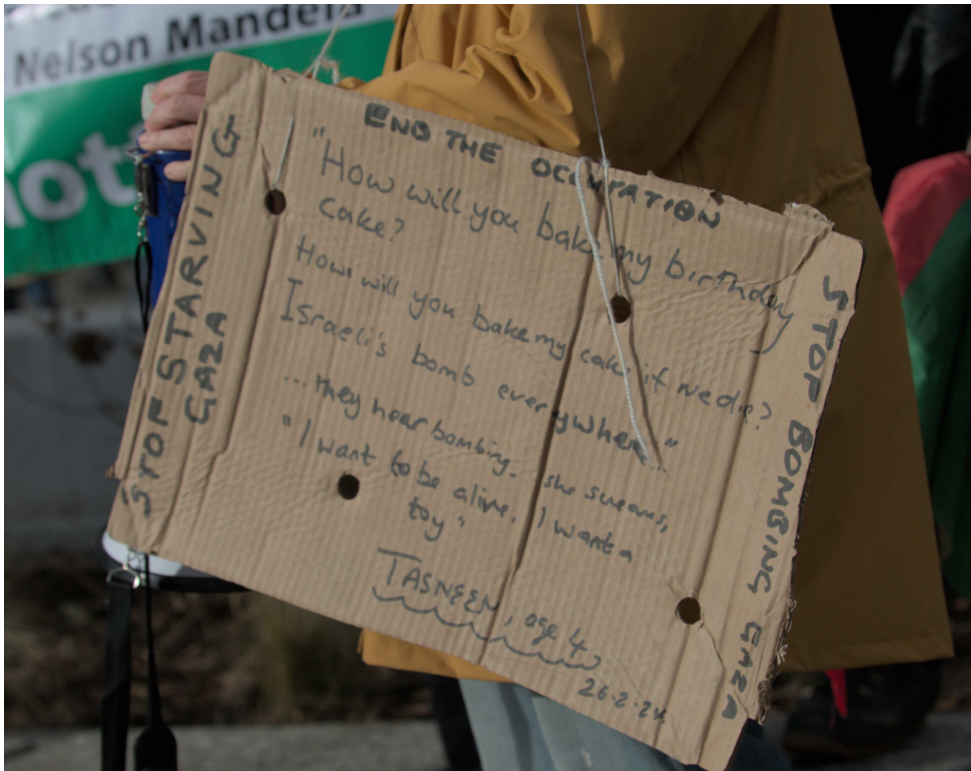 Nelson Mandela
not
END THE OCCUPATION
STOP STARVING
GAZA
"How will you bake my birthday
cake?
How will you bake my cake if we die?
Israeli's bomb everywhere."
...they hear bombing. she screams,
"I want to be alive. I want a
toy"
TASNEEM, age 4
26.2.24
STOP BOMBING GAZA